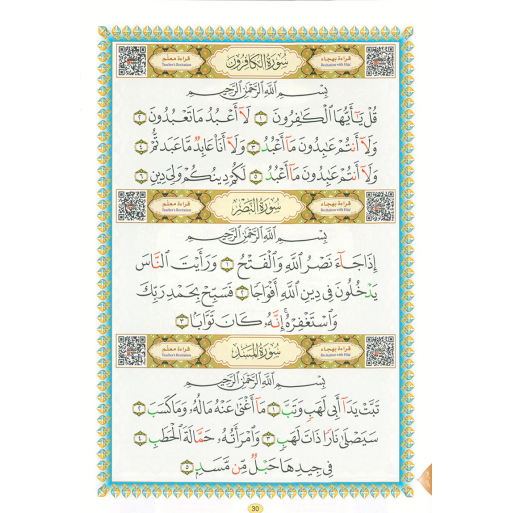 قراءة معلّم Teacher's Recitation سُورَةُ الكَافِرُون قراءة بهجاء Recitation with Hijaa
بِسْمِ اللَّهِ الرَّحْمَٰنِ الرَّحِيمِ
قُلْ يَا أَيُّهَا الْكَافِرُونَ ١ لَا أَعْبُدُ مَا تَعْبُدُونَ ٢
وَلَا أَنتُمْ عَابِدُونَ مَا أَعْبُدُ ٣ وَلَا أَنَا عَابِدٌ مَّا عَبَدتُّمْ ٤
وَلَا أَنتُمْ عَابِدُونَ مَا أَعْبُدُ ٥ لَكُمْ دِينُكُمْ وَلِيَ دِينِ ٦
قراءة معلّم Teacher's Recitation سُورَةُ النَّصْر قراءة بهجاء Recitation with Hijaa
بِسْمِ اللَّهِ الرَّحْمَٰنِ الرَّحِيمِ
إِذَا جَاءَ نَصْرُ اللَّهِ وَالْفَتْحُ ١ وَرَأَيْتَ النَّاسَ
يَدْخُلُونَ فِي دِينِ اللَّهِ أَفْوَاجًا ٢ فَسَبِّحْ بِحَمْدِ رَبِّكَ
وَاسْتَغْفِرْهُ إِنَّهُ كَانَ تَوَّابًا ٣
قراءة معلّم Teacher's Recitation سُورَةُ المَسَد قراءة بهجاء Recitation with Hijaa
بِسْمِ اللَّهِ الرَّحْمَٰنِ الرَّحِيمِ
تَبَّتْ يَدَا أَبِي لَهَبٍ وَتَبَّ ١ مَا أَغْنَىٰ عَنْهُ مَالُهُ وَمَا كَسَبَ ٢
سَيَصْلَىٰ نَارًا ذَاتَ لَهَبٍ ٣ وَامْرَأَتُهُ حَمَّالَةَ الْحَطَبِ ٤
فِي جِيدِهَا حَبْلٌ مِّن مَّسَدٍ ٥
30